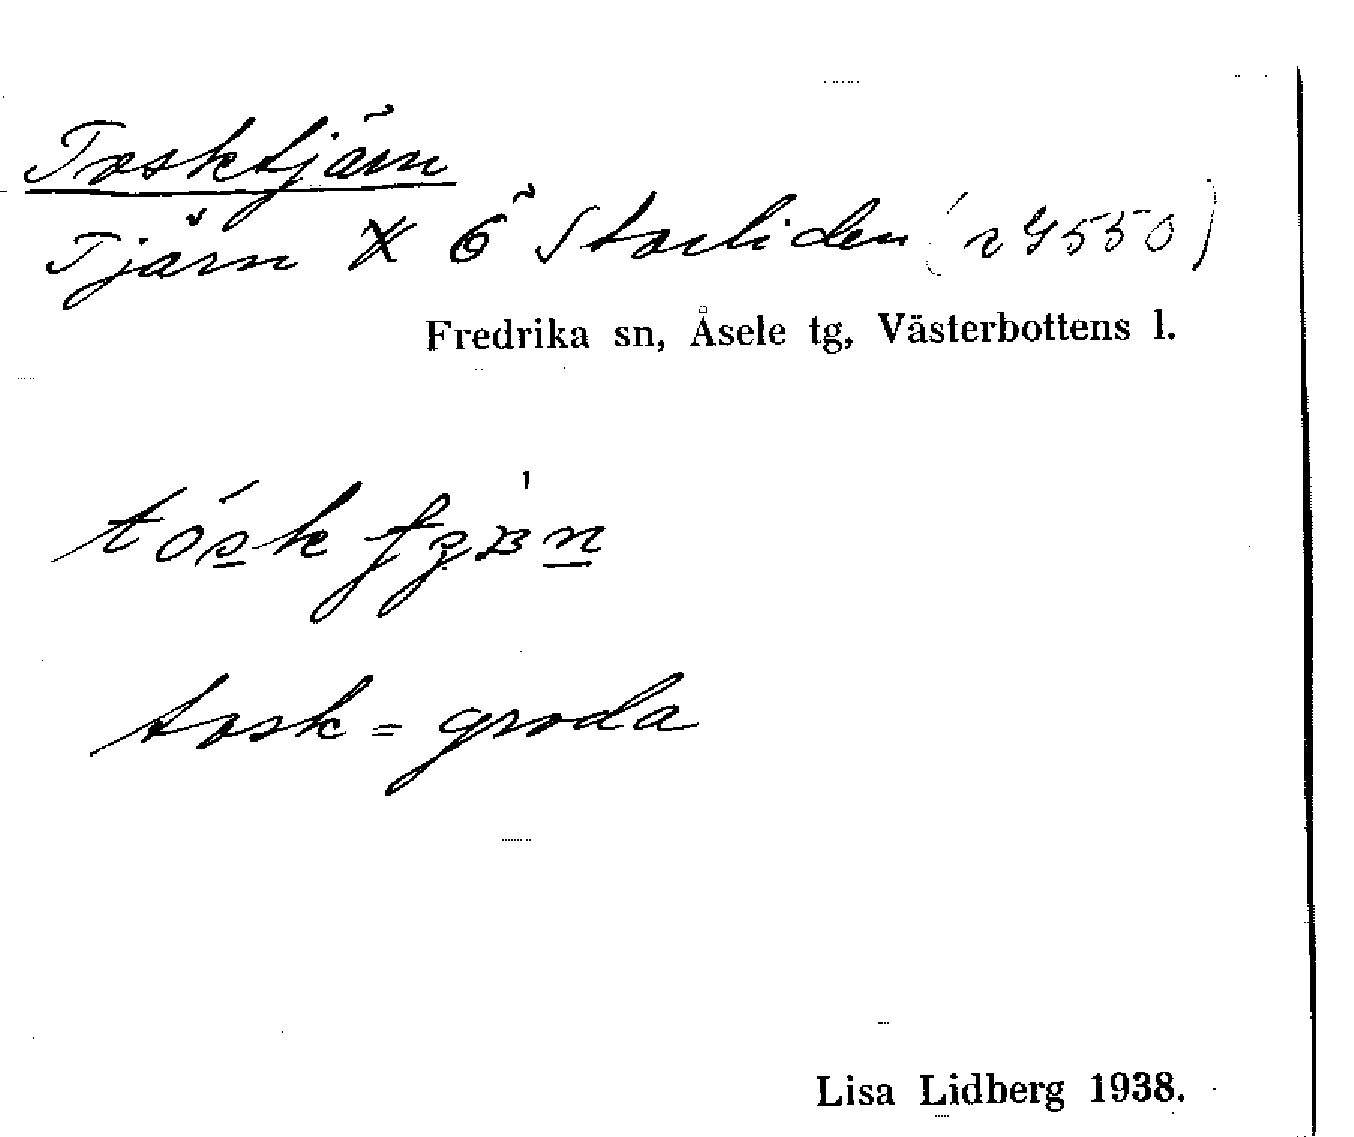 Tosktjärn
Tjärn X 6 Storliden
Fredrika sn, Åsele tg, Västerbottens l.
tosk = groda
Lisa Lidberg 1938.